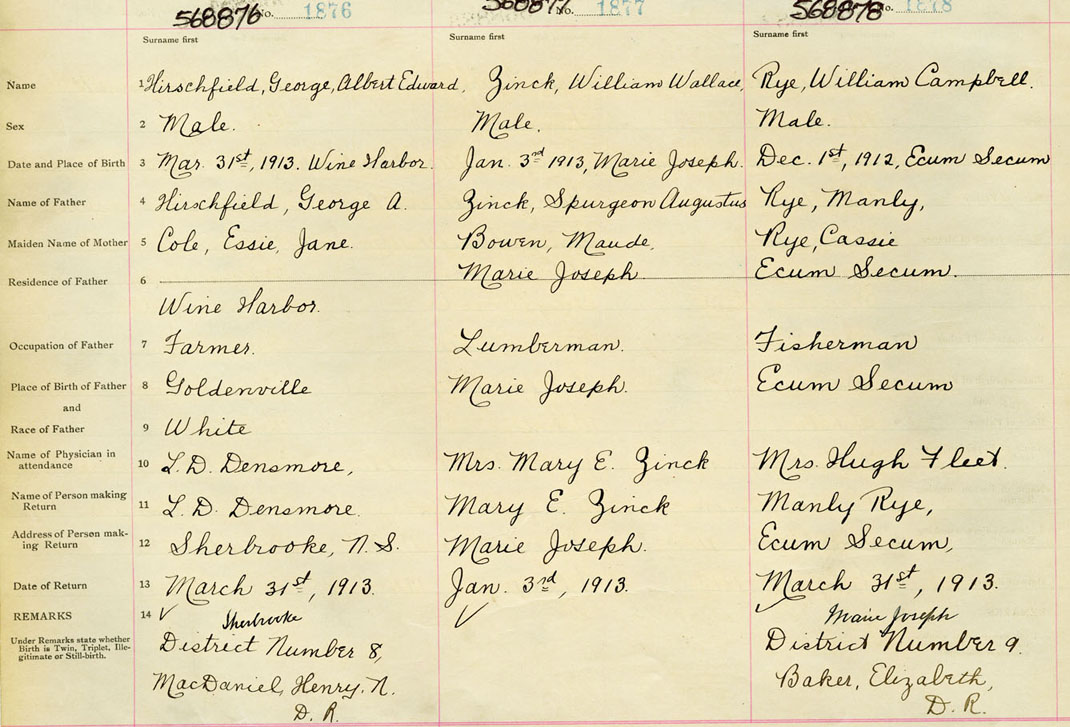 568876 No. 1876 568877 No. 1877 568878 No. 1878
Surname first Surname first Surname first
Name 1 Hirschfield, George, Albert Edward, Zinck, William Wallace, Rye, William Campbell.
Sex 2 Male. Male. Male.
Date and Place of Birth 3 Mar. 31st, 1913. Wine Harbor. Jan. 3rd 1913, Marie Joseph. Dec. 1st, 1912, Ecum Secum
Name of Father 4 Hirschfield, George A. Zinck, Spurgeon Augustus Rye, Manly,
Maiden Name of Mother 5 Cole, Essie, Jane. Bowen, Maude, Rye, Cassie
Residence of Father 6 Marie Joseph. Ecum Secum.
Wine Harbor.
Occupation of Father 7 Farmer. Lumberman. Fisherman
Place of Birth of Father 8 Goldenville Marie Joseph. Ecum Secum
and
Race of Father 9 White
Name of Physician in
attendance 10 L. D. Densmore, Mrs. Mary E. Zinck Mrs. Hugh Fleet.
Name of Person making
Return 11 L. D. Densmore. Mary E. Zinck Manly Rye,
Address of Person mak-
ing Return 12 Sherbrooke, N. S. Marie Joseph. Ecum Secum,
Date of Return 13 March 31st, 1913. Jan. 3rd, 1913. March 31st, 1913.
REMARKS 14 ✓ Sherbrooke ✓ ✓ Marie Joseph
Under Remarks state whether
Birth is Twin, Triplet, Ille-
gitimate or Still-birth.
District Number 8, District Number 9.
MacDaniel, Henry, N. Baker, Elizabeth,
D. R. D. R.